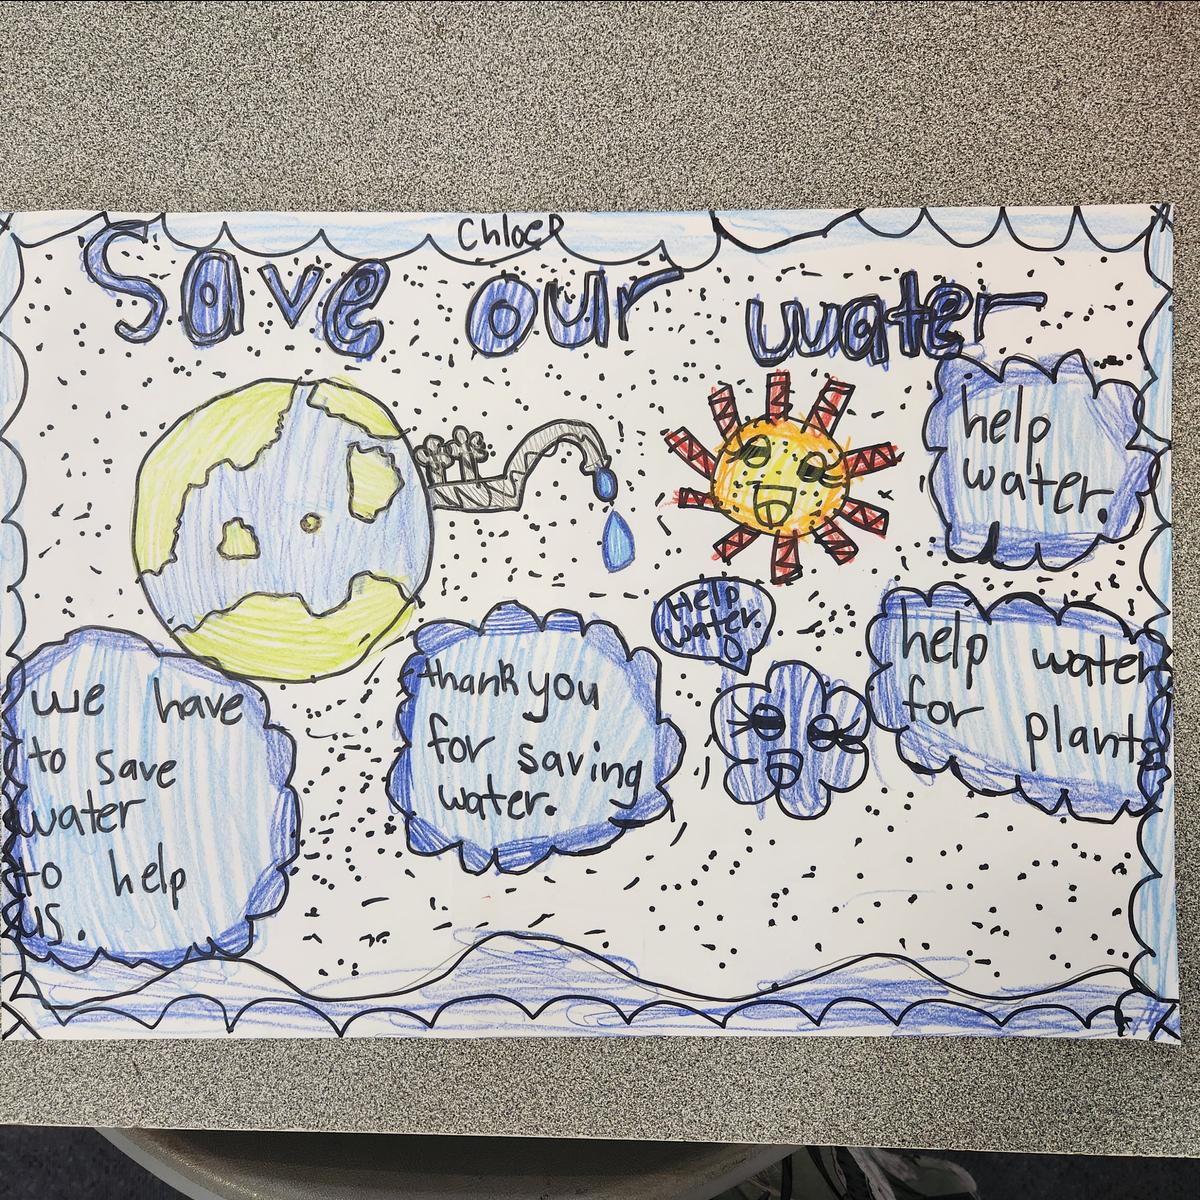 Chloe R
Save our water
help
water.
Help
water.
help water
for plants
thank you
for saving
water.
we have
to save
water
to help
us.